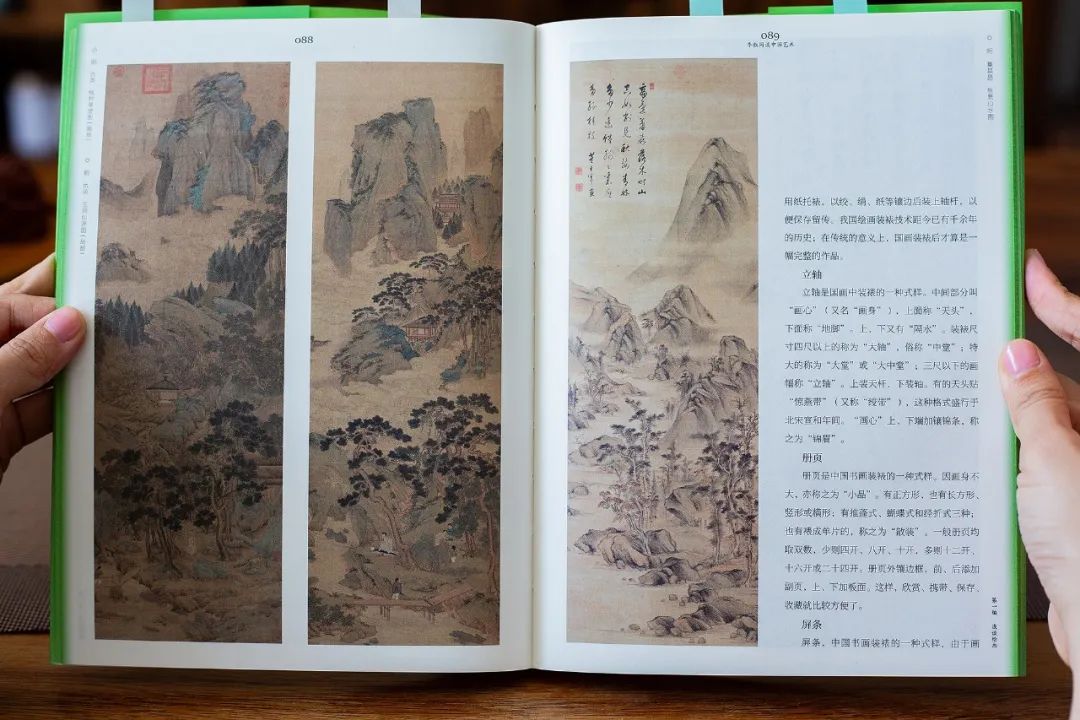 088
089
用纸托裱,以绫、绢、纸等镶边后装上轴杆,以
便保存留传。我国绘画装裱技术距今已有千余年
的历史;在传统的意义上,国画装裱后才算是一
幅完整的作品。
立轴
立轴是国画中装裱的一种式样。中间部分叫
“画心”(又名“画身”),上面称“天头”,
下面称“地脚”。上、下又有“隔水”。装裱尺
寸四尺以上的称为“大轴”,俗称“中堂”;特
大的称为“大堂”或“大中堂”;三尺以下的画
幅称“立轴”。上装天杆、下装轴。有的天头贴
“惊燕带”(又称“绶带”),这种格式盛行于
北宋宣和年间。“画心”上、下端加镶锦条,称
之为“锦眉”。
册页
册页是中国书画装裱的一种式样。因画身不
大,亦称之为“小品”。有正方形,也有长方形、
竖形或横形;有推蓬式、蝴蝶式和经折式三种;
也有裱成单片的,称之为“散装”。一般册页均
取双数,少则四开、八开、十开,多则十二开、
十六开或二十四开。册页外镶边框,前、后添加
副页,上、下加板面。这样,欣赏、携带、保存、
收藏就比较方便了。
屏条
屏条,中国书画装裱的一种式样,由于画
第一编 漫谈绘画